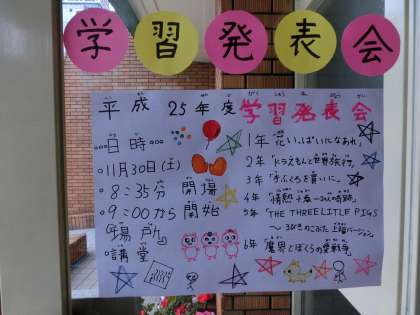 学習発表会
平成25年度学習発表会
日時
11月30日(土)
8:35分 開場
9:00から 開始
場所
講堂
1年「花いっぱいになあれ」
2年「ドラえもんと世界旅行」
3年「手ぶくろを買いに」
4年
5年「THE THREE LITTLE PIGS
～3びきのこぶた 上福バージョン」
6年「魔界とぼくらの愛戦争」